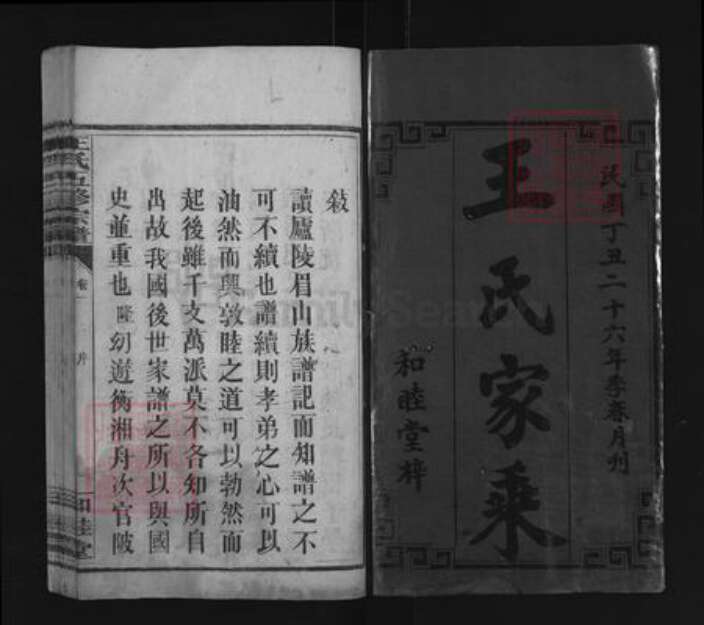 民國丁丑二十六年季春月刋
王氏家乘
和睦堂梓
敍
讀廬陵眉山族譜記而知譜之不
可不續也譜續則孝弟之心可以
油然而興敦睦之道可以勃然而
起後雖千支萬派莫不各知所自
出故我國後世家譜之所以與國
史並重也隆幼遊衡湘舟次官陂
王氏五修宗譜
卷一
和睦堂
FamilySearch